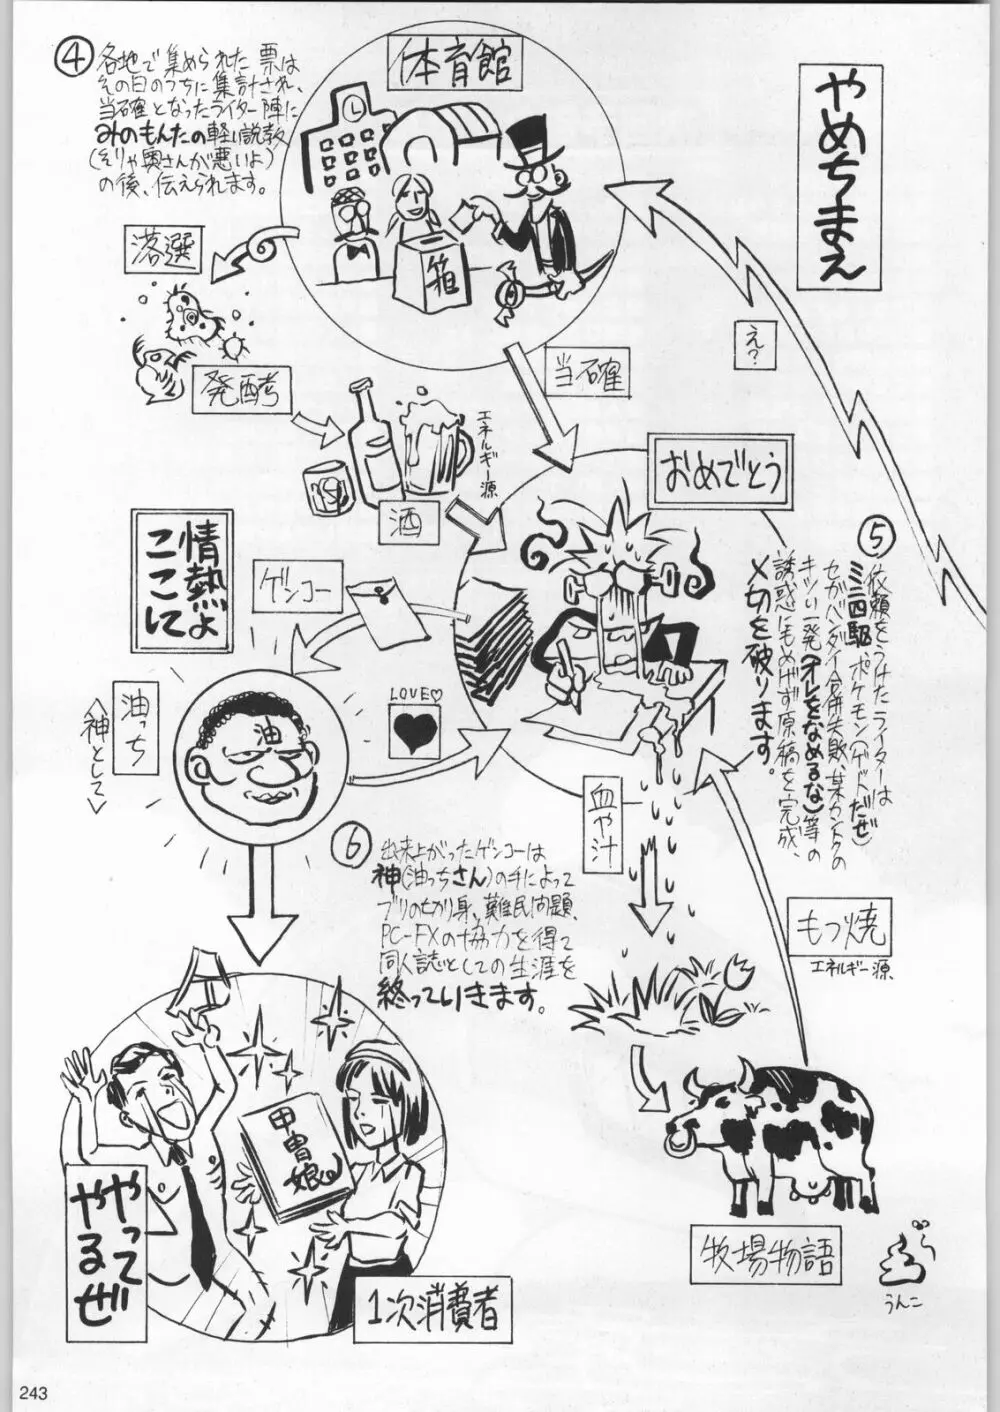 やめちまえ
体育館
④
各地で集められた票は
その日のうちに集計され、
当確となったライター陣に
みのもんたの軽い説教
(そりゃ奥さんが悪いよ)
の後、伝えられます。
箱
落選
発酵
え?
当確
エネルギー源
酒
おめでとう
⑤
依頼をうけたライターは
ミニ四駆、ポケモン(ゲドだぜ)
セガバンダイ合併失敗、某カントクの
キツい一発(オレをなめるな)等の
誘惑にもめげず原稿を完成、
〆切を破ります。
情熱よ
ここに
ゲンコー
LOVE♡
油
油っち
<神として>
血や汁
⑥
出来上がったゲンコーは
神(油っちさん)の手によって
ブリの切り身、難民問題、
PC-FXの協力を得て
同人誌としての生涯を
終っていきます。
もつ焼
エネルギー源
甲冑娘
やって
やるぜ
1次消費者
牧場物語
うんこ
243